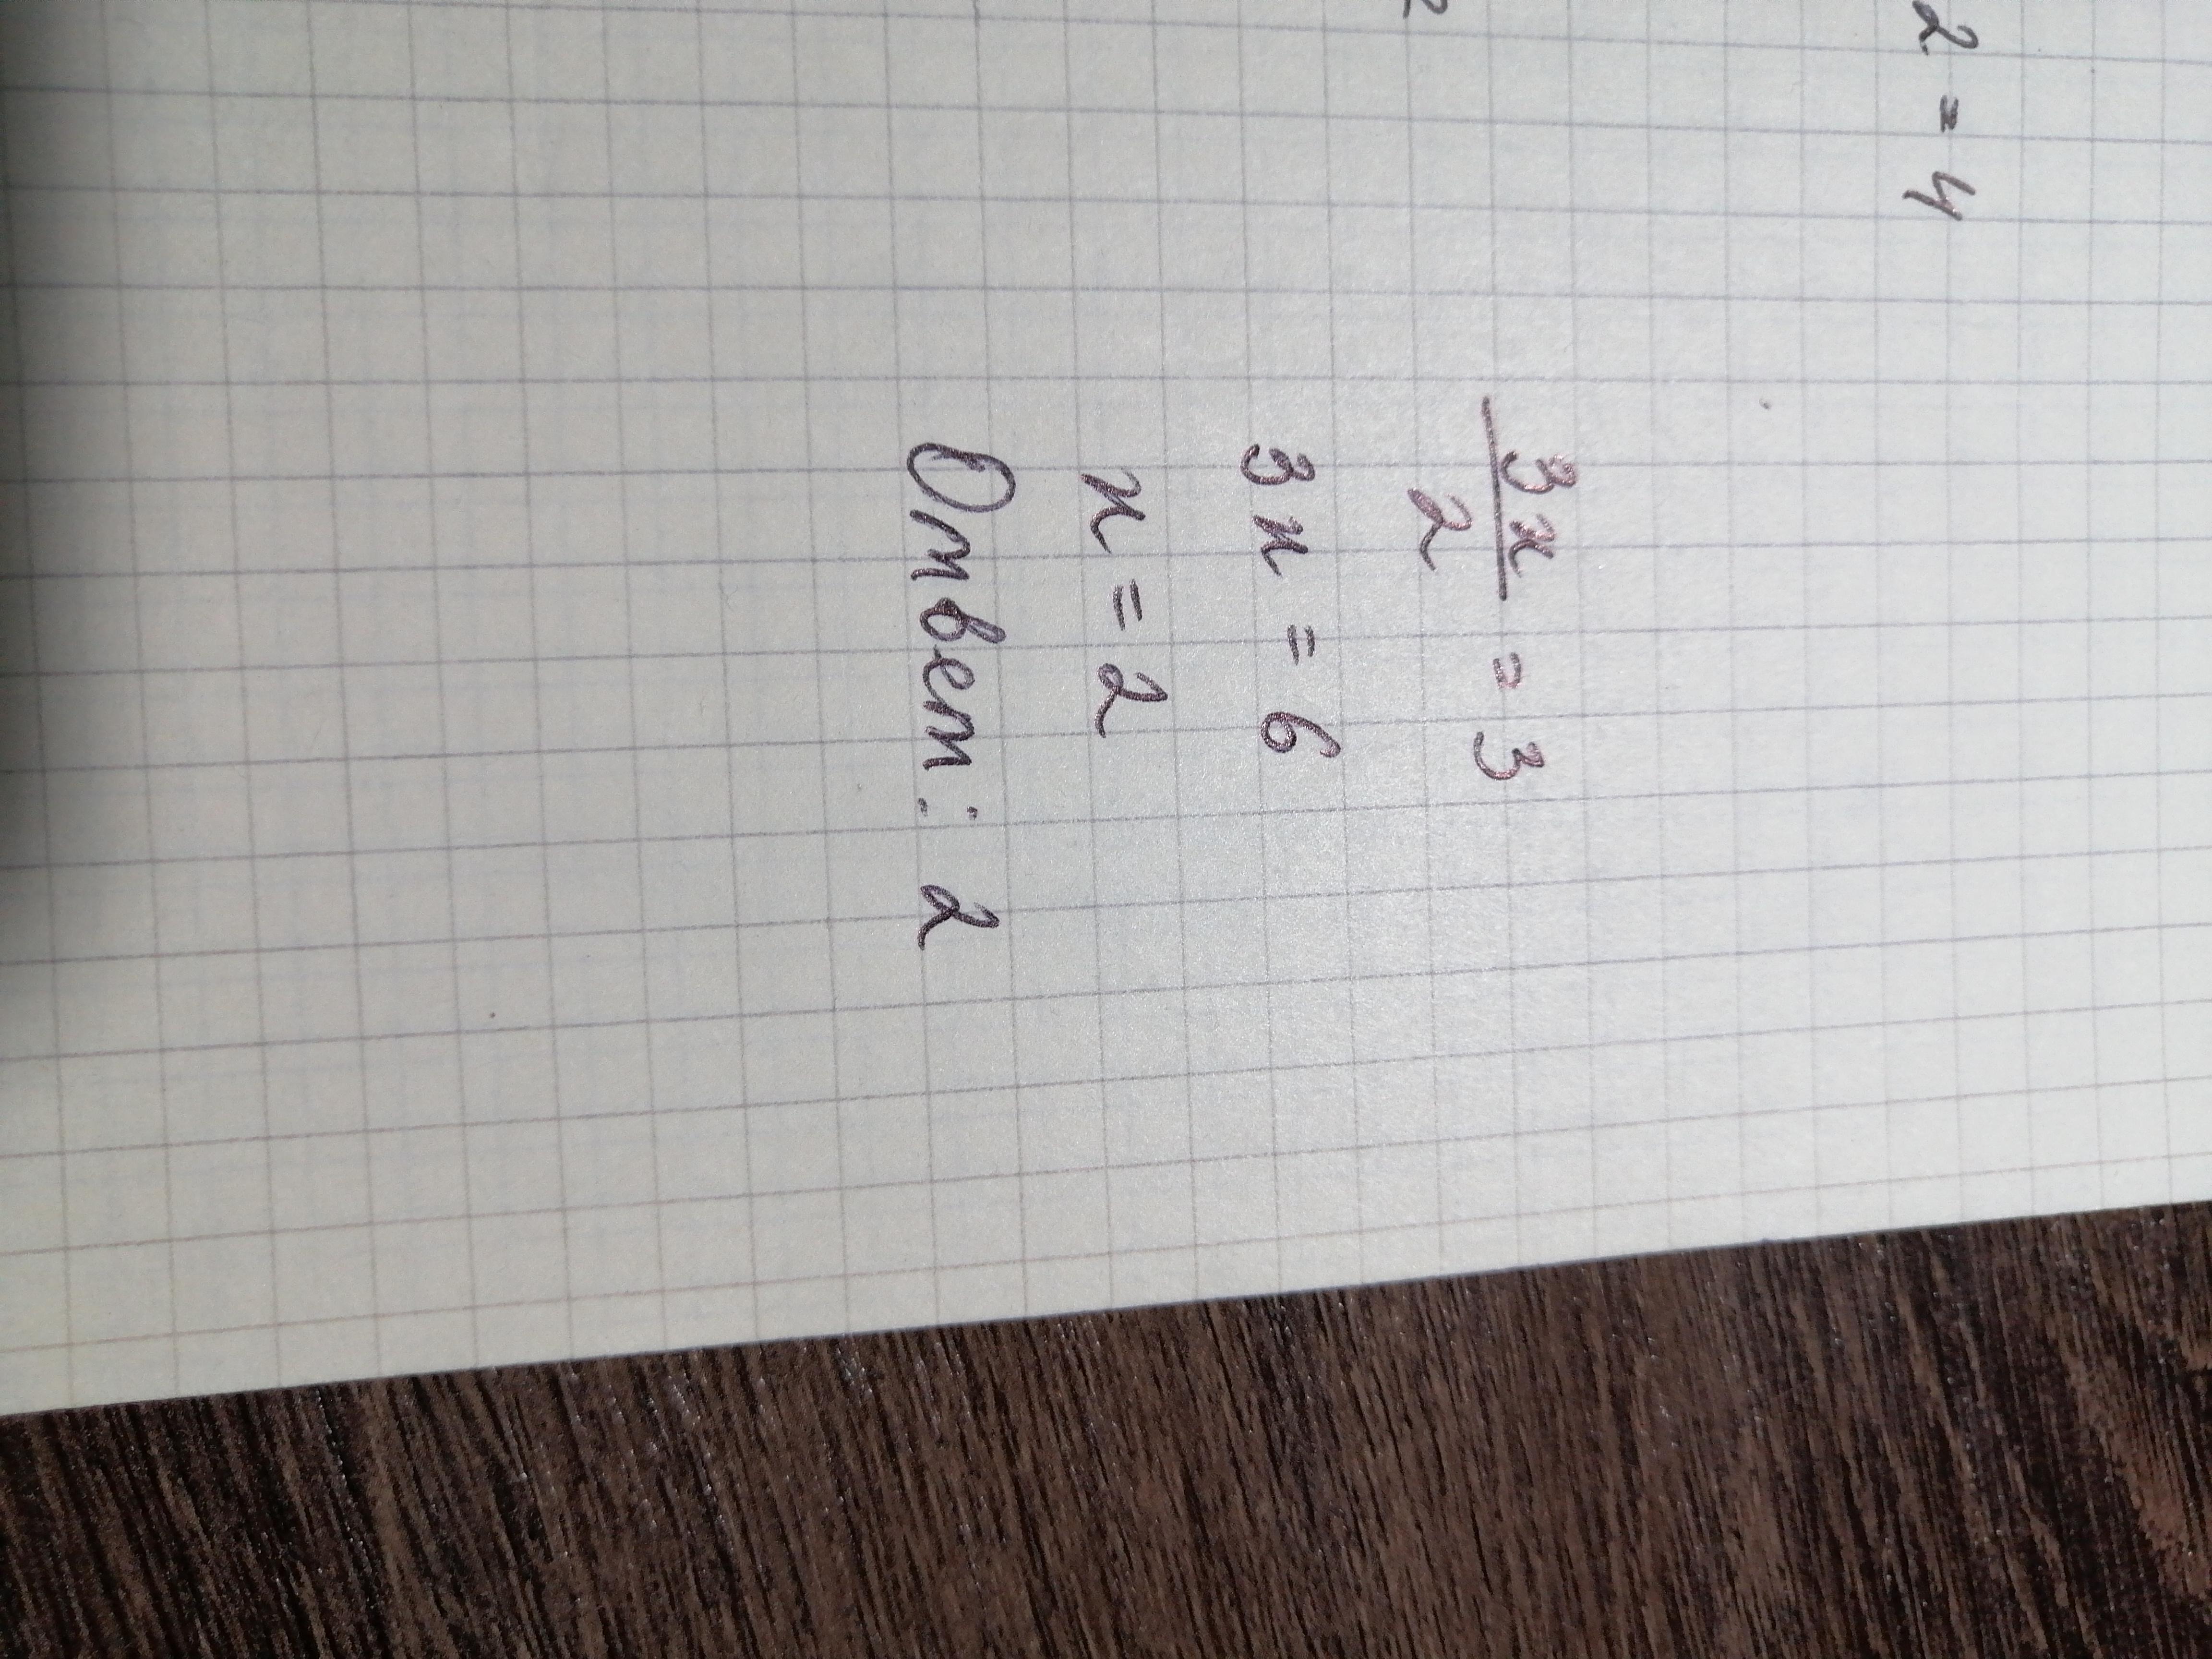 2 = 4
3x/2 = 3
3x = 6
x = 2
Ответ: 2